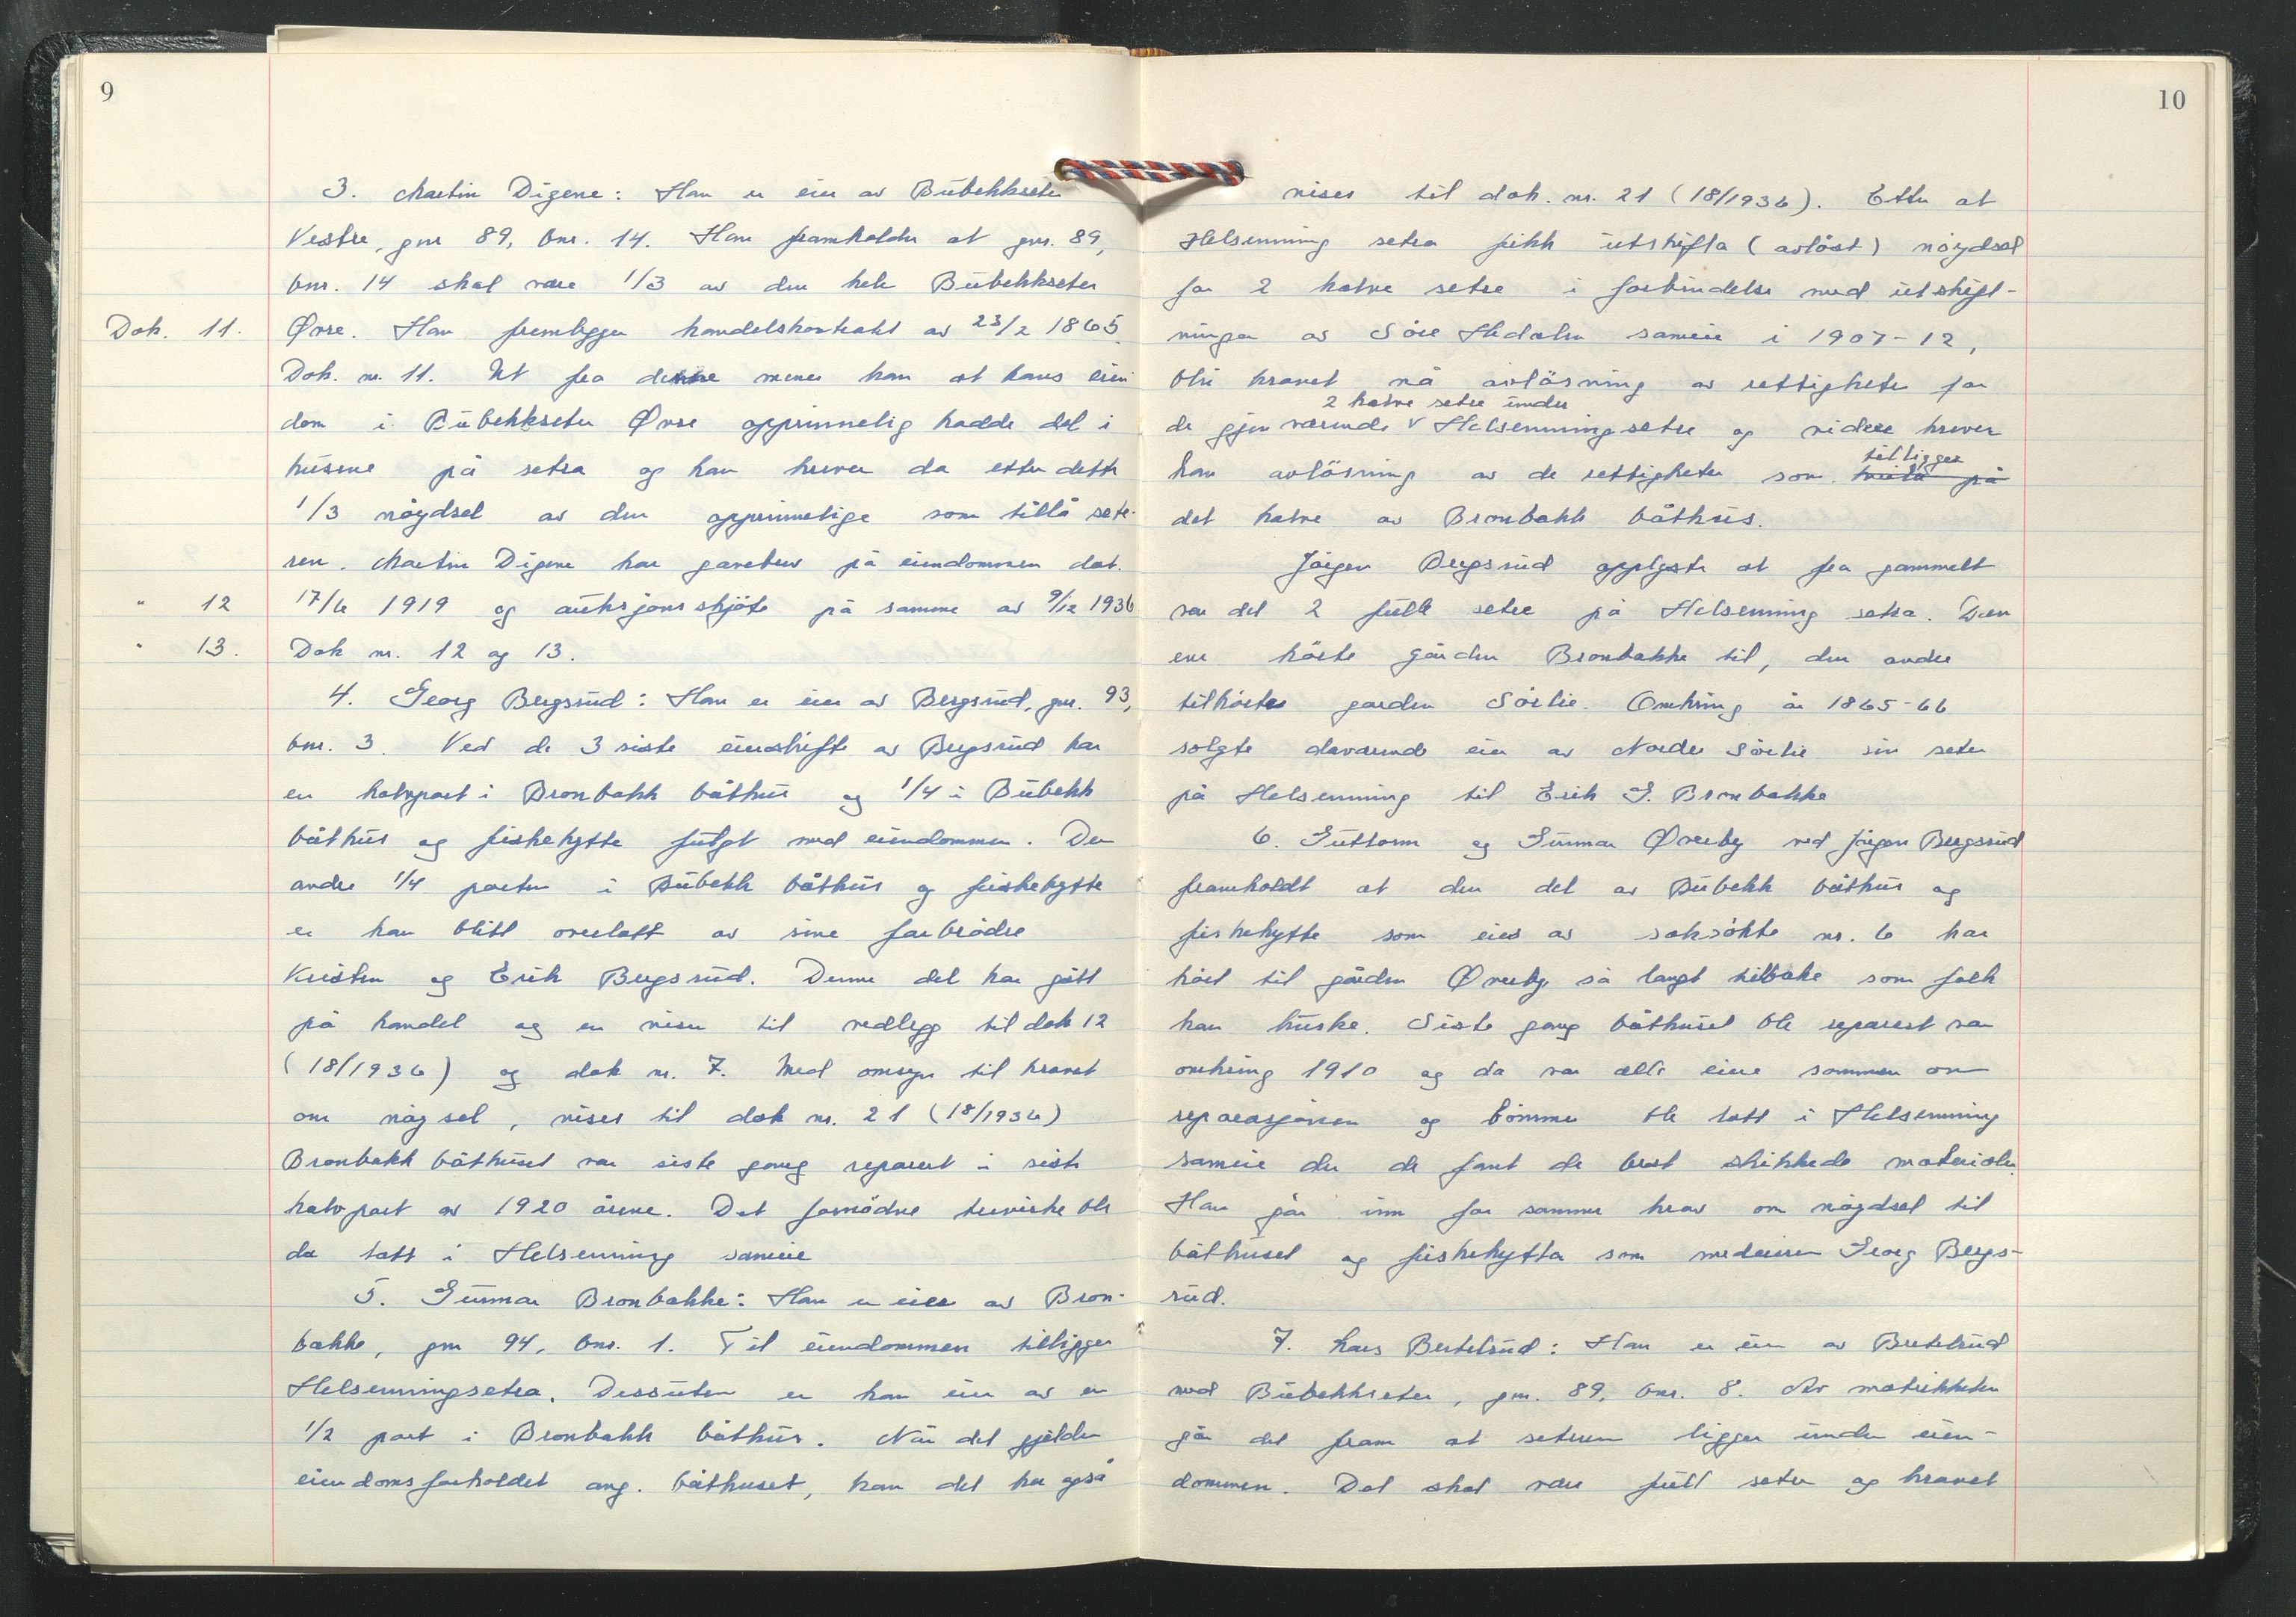 9
3. Martin Digene: Han er eier av Bubekkseter
Vestre, gnr 89, bnr. 14. Han framholder at gnr. 89,
bnr. 14 skal være 1/3 av den hele Bubekkseter
Dok. 11. Øvre. Han fremlegger handelskontrakt av 23/2 1865.
Dok. nr. 11. Ut fra denne mener han at hans eien
dom i Bubekkseter Øvre opprinnelig hadde del i
husene på setra og han krever da etter dette
1/3 nøydsel av den opprinnelige som tillå sete-
ren. Martin Digene har gavebrev på eiendommen dat.
" 12 17/6 1919 og auksjonsskjøte på samme av 9/12 1936
" 13. Dok nr. 12 og 13.
4. Georg Bergsrud: Han er eier av Bergsrud, gnr. 93,
bnr. 3. Ved de 3 siste eierskifte av Bergsrud har
en halvpart i Bronbakk båthus og 1/4 i Bubekk
båthus og fiskehytte fulgt med eiendommen. Den
andre 1/4 parten i Bubekk båthus og fiskehytte
er han blitt overlatt av sine farbrødre
Kristen og Erik Bergsrud. Denne del har gått
på handel og en viser til vedlegg til dok 12
(18/1936) og dok nr. 7. Med omsyn til kravet
om nøysel, vises til dok nr. 21 (18/1936)
Bronbakk båthuset var siste gang reparert i siste
halvpart av 1920 årene. Det fornødne trevirke ble
da tatt i Helsenning sameie
5. Gunnar Bronbakke: Han er eier av Bron-
bakke, gnr 94, bnr. 1. Til eiendommen tilligger
Helsenningsetra. Dessuten er han eier av en
1/2 part i Bronbakk båthus. Når det gjelder
eiendomsforholdet ang. båthuset, kan det her også
10
vises til dok. nr. 21 (18/1936). Etter at
Helsenning setra fikk utskifta (avløst) nøydsel
for 2 halve setre i forbindelse med utskift-
ningen av Søre Hedalen sameie i 1907-12,
ble kravet nå avløsning av rettigheter for
2 halve setre under
de gjenværende v Helsenningsetre og videre krever
tilligger
han avløsning av de rettigheter som på
det halve av Bronbakk båthus.
Jørgen Bergsrud opplyste at fra gammelt
var det 2 fulle setre på Helsenning setra. Den
ene hørte gården Bronbakke til, den andre
tilhørte garden Sørlie. Omkring år 1865-66
solgte daværende eier av Nordre Sørlie sin seter
på Helsenning til Erik G. Bronbakke
6. Guttorm og Gunnar Øverby ved Jørgen Bergsrud
framholdt at den del av Bubekk båthus og
fiskehytte som eies av saksøkte nr. 6 har
hørt til gården Øverby så langt tilbake som folk
kan huske. Siste gang båthuset ble reparert var
omkring 1910 og da var alle eiere sammen om
reparasjonen og tømmer ble tatt i Helsenning
sameie der de fant de best skikkede materialer.
Han går inn for samme krav om nøydsel til
båthuset og fiskehytta som medeieren Georg Bergs-
rud.
7. Lars Bertelsrud: Han er eier av Bertelsrud
med Bubekkseter, gnr. 89, bnr. 8. Av matrikkelen
går det fram at seteren ligger under eien-
dommen. Det skal være full seter og kravet